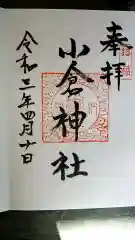 奉拝
小倉神社
令和二年四月十日